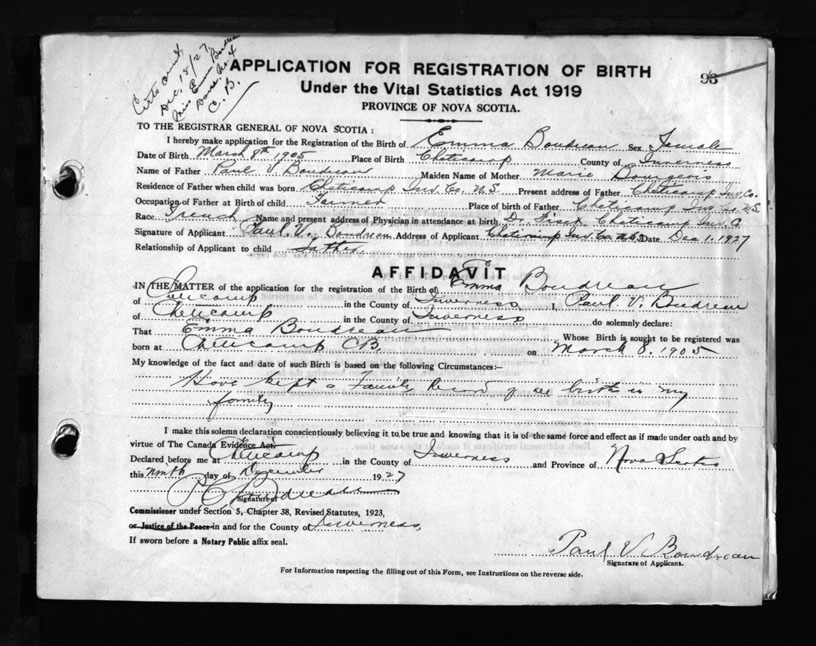 Dec. 18/27.
Miss Emma Boudreau
C. B.
98
APPLICATION FOR REGISTRATION OF BIRTH
Under the Vital Statistics Act 1919
PROVINCE OF NOVA SCOTIA.
TO THE REGISTRAR GENERAL OF NOVA SCOTIA:
I hereby make application for the Registration of the Birth of Emma Boudreau Sex Female
Date of Birth March 8th 1905 Place of Birth Cheticamp County of Inverness
Name of Father Paul V. Boudreau Maiden Name of Mother Marie Bourgeois
Residence of Father when child was born Cheticamp Inv. Co. N.S. Present address of Father Cheticamp Inv. Co.
Occupation of Father at Birth of child Farmer Place of birth of Father Cheticamp Inv Co. N.S.
Race French Name and present address of Physician in attendance at birth Dr. Fiset Cheticamp Inv. C.
Signature of Applicant Paul. V. Boudreau Address of Applicant Cheticamp Inv. Co. N.S. Date Dec 1. 1927
Relationship of Applicant to child father
AFFIDAVIT
IN THE MATTER of the application for the registration of the Birth of Emma Boudreau
of Cheticamp in the County of Inverness I, Paul V. Boudreau
of Cheticamp in the County of Inverness do solemnly declare:
That Emma Boudreau Whose Birth is sought to be registered was
born at Cheticamp C.B. on March 8. 1905
My knowledge of the fact and date of such Birth is based on the following Circumstances:—
Have kept a Family Record of all birth in my
family
I make this solemn declaration conscientiously believing it to be true and knowing that it is of the same force and effect as if made under oath and by
virtue of The Canada Evidence Act.
Declared before me at Cheticamp in the County of Inverness and Province of Nova Scotia
this Ninth day of December 1927
Signature of
Commissioner under Section 5, Chapter 38, Revised Statutes, 1923,
or Justice of the Peace in and for the County of Inverness,
If sworn before a Notary Public affix seal.
Paul V. Boudreau
Signature of Applicant.
For Information respecting the filling out of this Form, see Instructions on the reverse side.